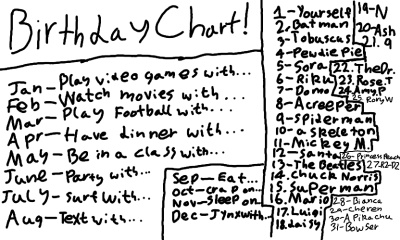 Birthday Chart!
Jan-Play video games with...
Feb-Watch movies with...
Mar-Play Football with...
Apr-Have dinner with...
May-Be in a class with...
June-Party with...
July-surf with...
Aug-Text with...
Sep-Eat...
oct-crap on...
Nov-sleep on...
Dec-Jynx with...
1-Yourself
2-Batman
3-Tobuscus
4-PewdiePie
5-Sora
6-Riku
7-Domo
8-Acreeper
9-Spiderman
10-a skeleton
11-Mickey M.
12-Santa
13-The Beatles
14-chuck Norris
15-Superman
16-Mario
17.Luigi
18.daisy
19-N
20-Ash
21.9
22.TheDr.
23.Rose.T
24.Amy.P
25.Rory W
26-Princess Peach
27-R2-D2
28-Bianca
29-cheren
30-A Pikachu
31-Bowser